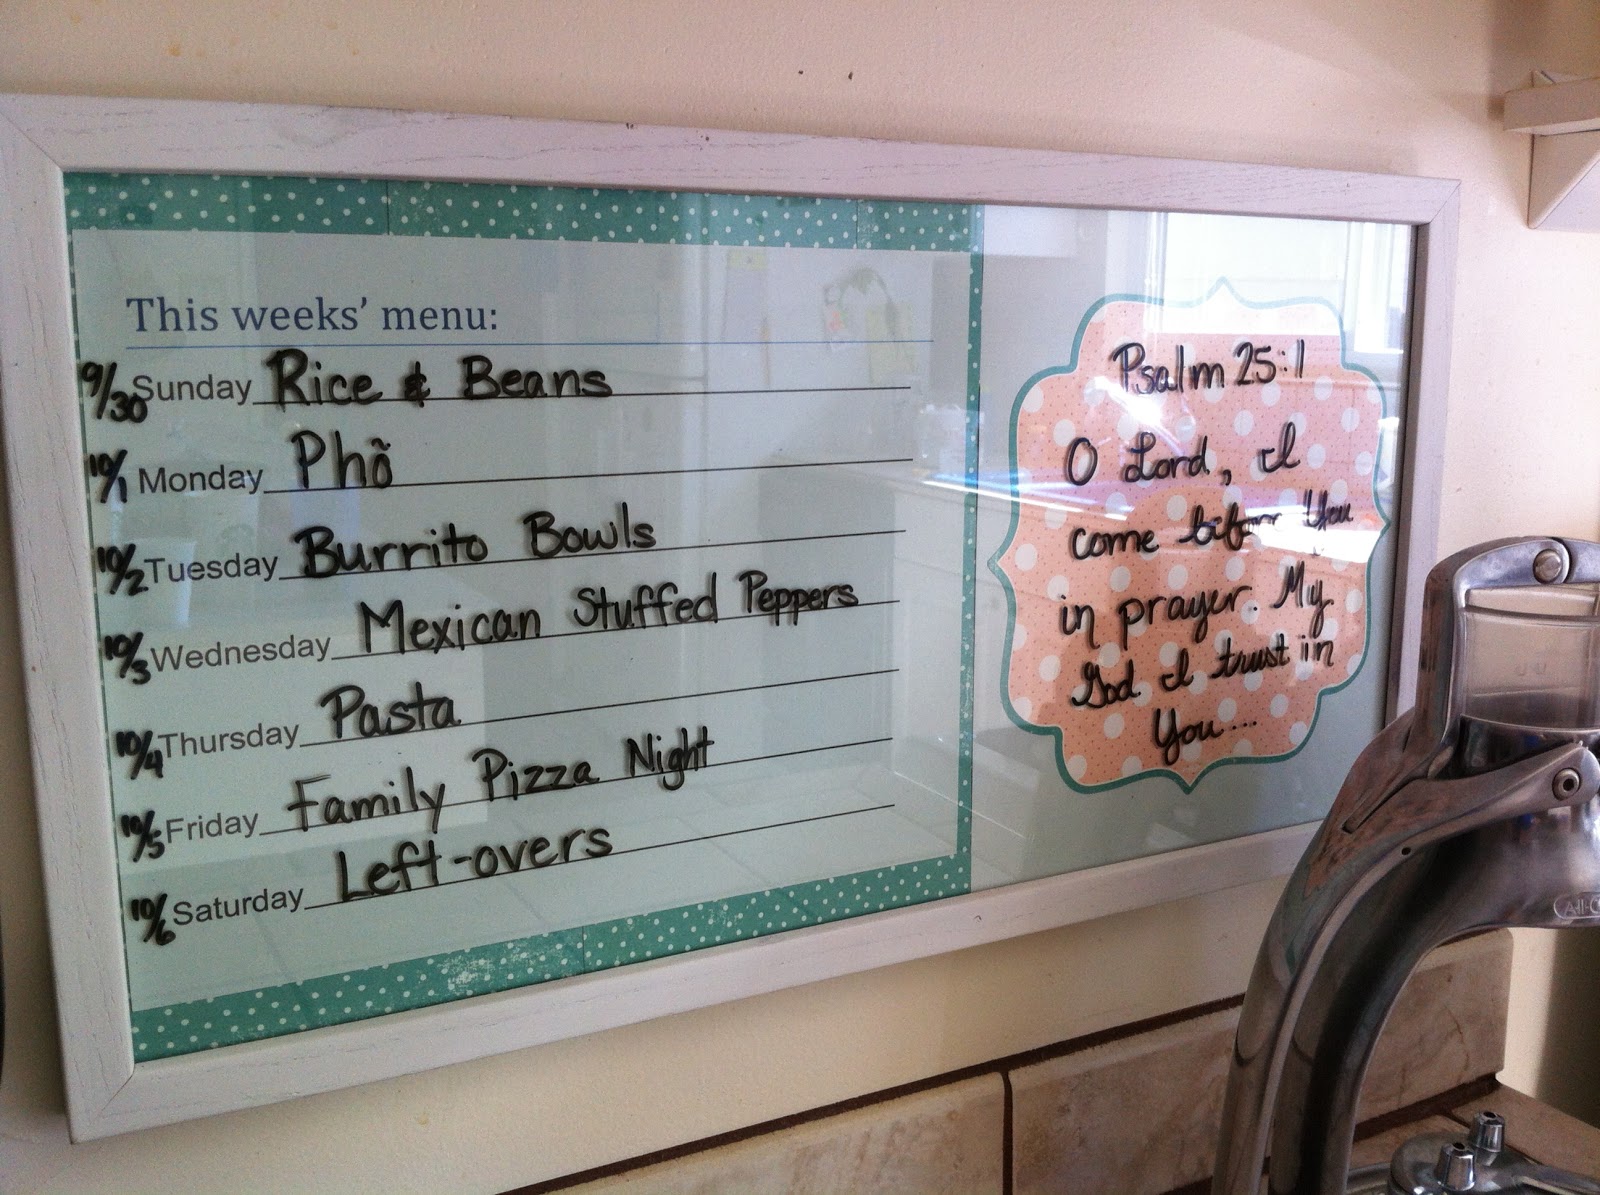 This weeks' menu:
9/30 Sunday Rice & Beans
10/1 Monday Phõ
10/2 Tuesday Burrito Bowls
10/3 Wednesday Mexican Stuffed Peppers
10/4 Thursday Pasta
10/5 Friday Family Pizza Night
10/6 Saturday Left-overs
Psalm 25:1
O Lord, I
come before You
in prayer. My
God I trust in
You....